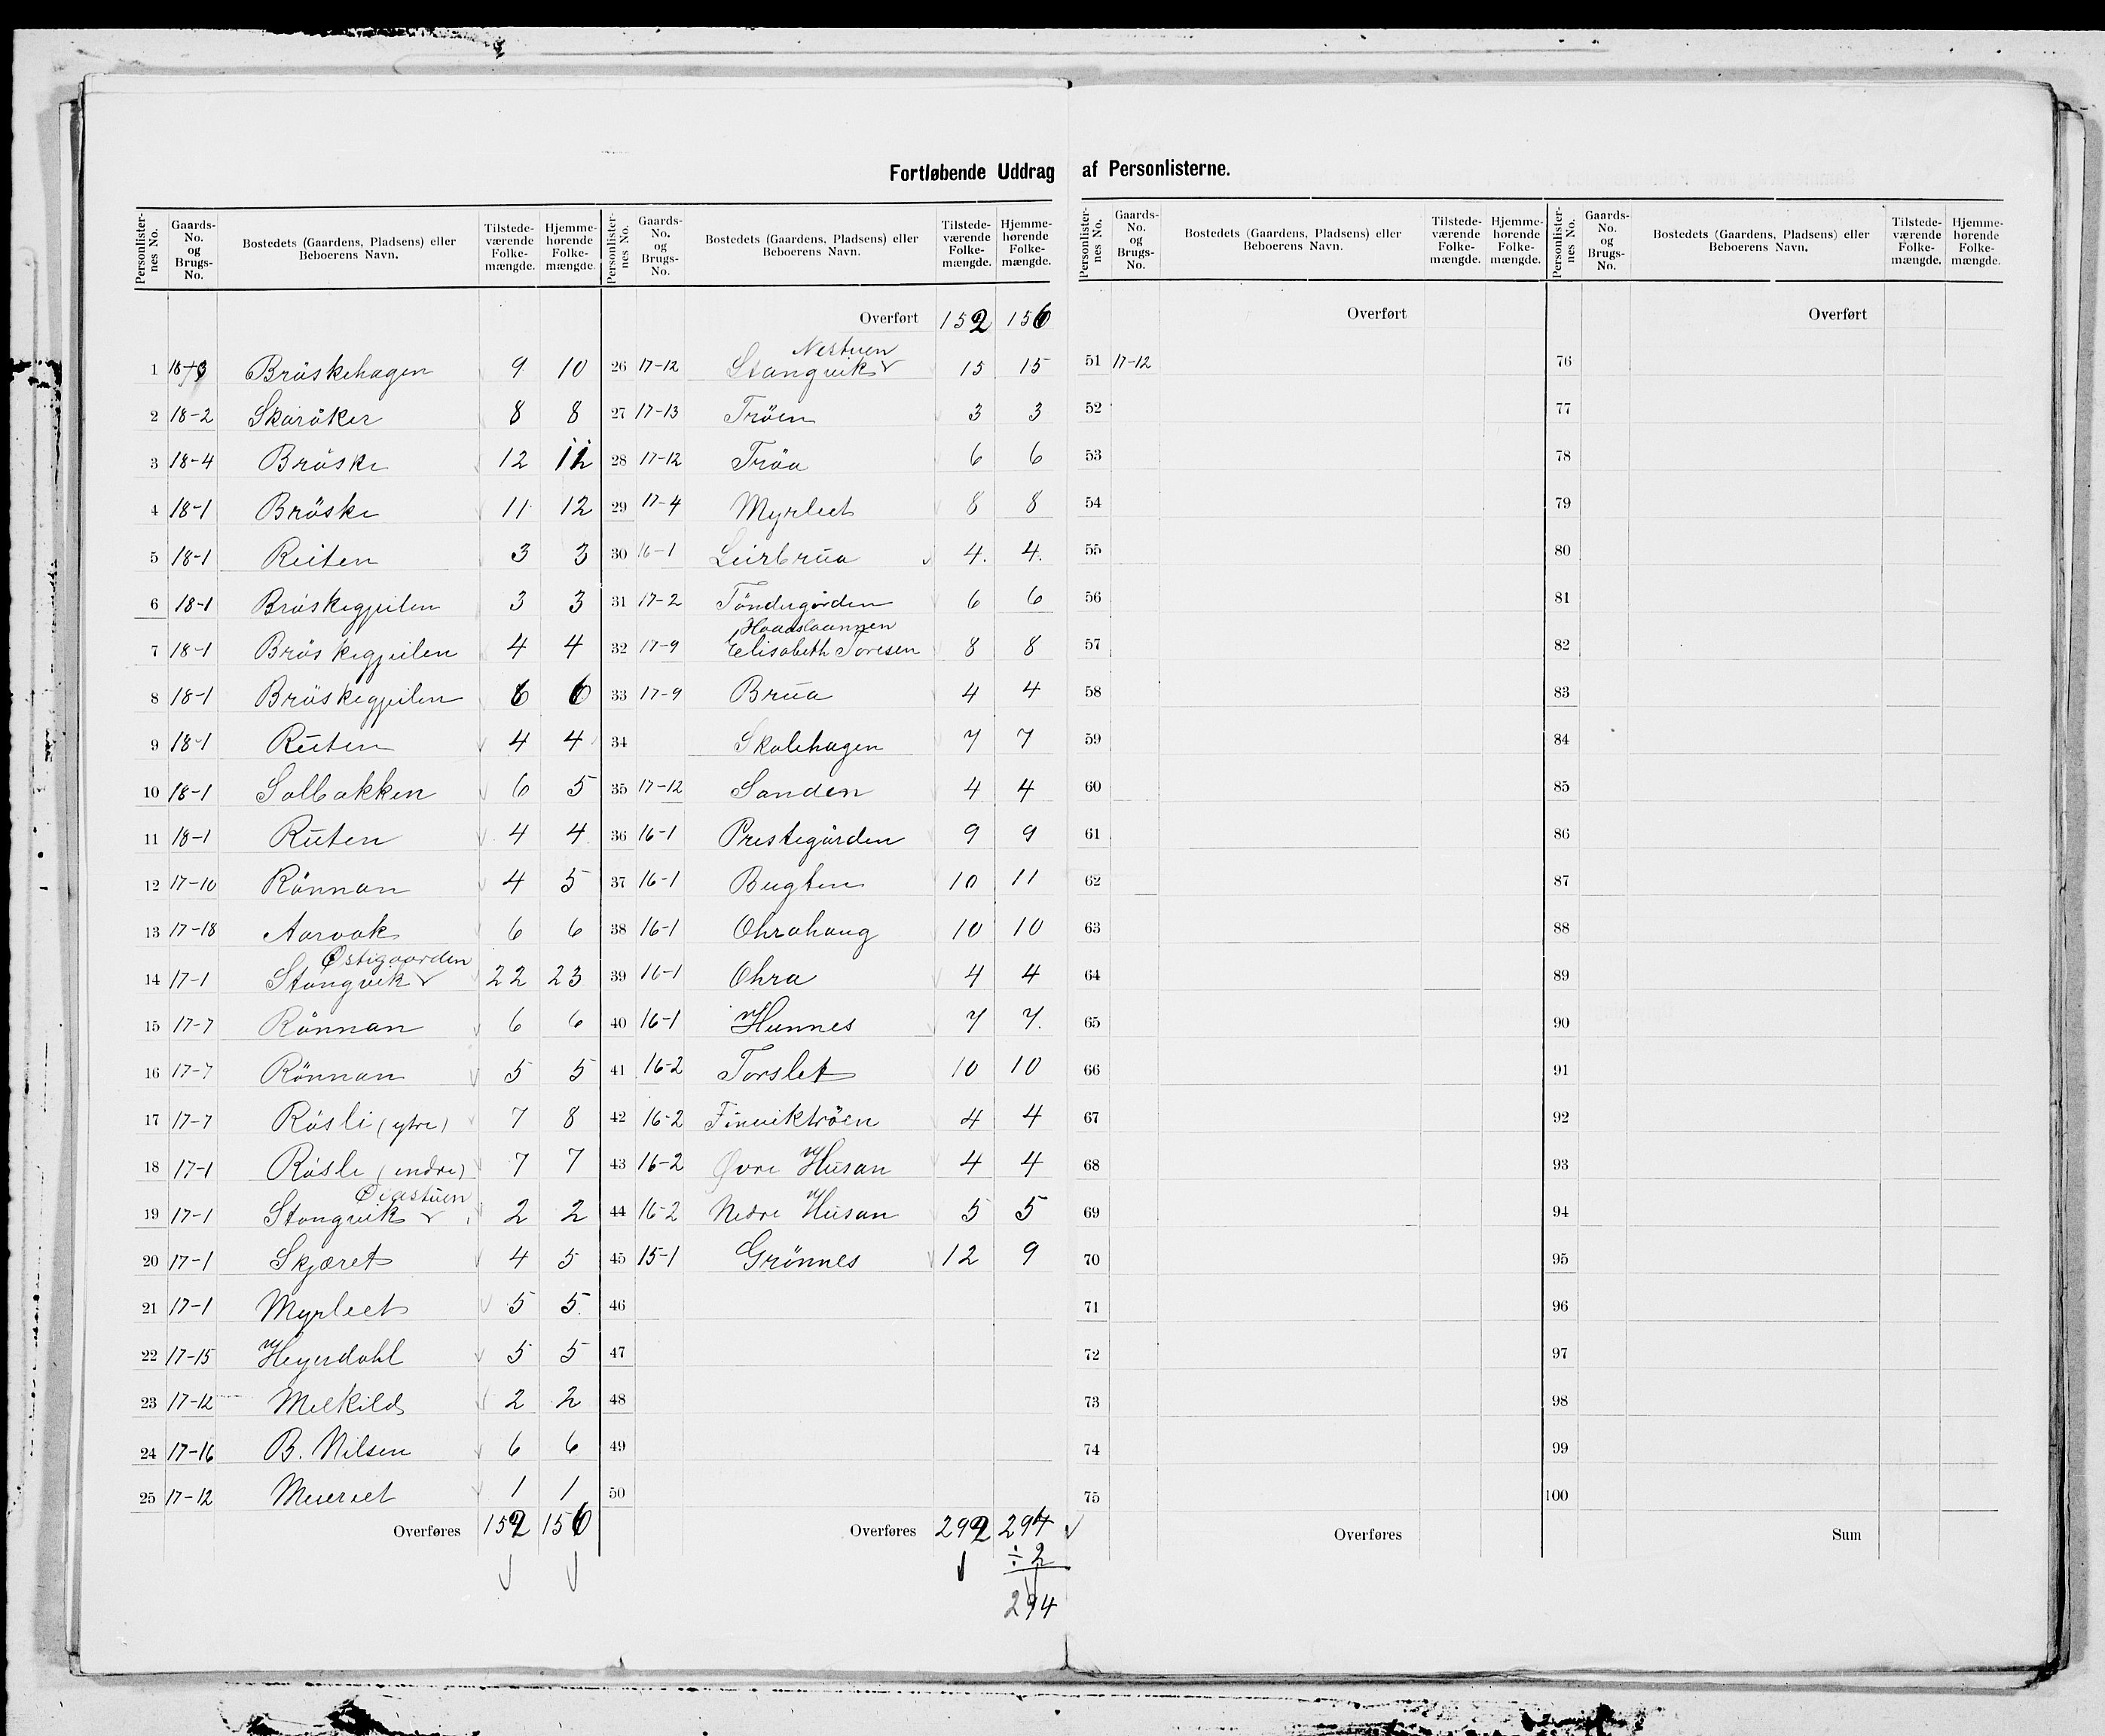 Fortløbende Uddrag af Personlisterne.
Personlister-nes No. Gaards-No. og Brugs-No. Bostedets (Gaardens, Pladsens) eller Beboerens Navn. Tilstede-værende Folke-mængde. Hjemme-hørende Folke-mængde.
1 18-3 Bröskehagen 9 10
2 18-2 Skaråker 8 8
3 18-4 Bröske 12 12
4 18-1 Bröske 11 12
5 18-1 Reiten 3 3
6 18-1 Bröskegjeilen 3 3
7 18-1 Bröskegjeilen 4 4
8 18-1 Bröskegjeilen 6 6
9 18-1 Reiten 4 4
10 18-1 Solbakken 6 5
11 18-1 Reiten 4 4
12 17-10 Rönnan 4 5
13 17-18 Aarvak 6 6
Østigaarden
14 17-1 Stangvik 22 23
15 17-7 Rönnan 6 6
16 17-7 Rönnan 5 5
17 17-7 Rösli (ytre) 7 8
18 17-1 Rösli (indre) 7 7
19 17-1 Stangvik 2 2
20 17-1 Skjæret 4 5
21 17-1 Myrleet 5 5
22 17-15 Heyerdahl 5 5
23 17-12 Melkild 2 2
24 17-16 B. Nilsen 6 6
25 17-12 Meieriet 1 1
Overføres 152 156
Personlister-nes No. Gaards-No. og Brugs-No. Bostedets (Gaardens, Pladsens) eller Beboerens Navn. Tilstede-værende Folke-mængde. Hjemme-hørende Folke-mængde.
Overført 152 156
Nestuen
26 17-12 Stangvik 15 15
27 17-13 Tröen 3 3
28 17-12 Tröa 6 6
29 17-4 Myrleet 8 8
30 16-1 Leirbrua 4. 4.
31 17-2 Töndergården 6 6
32 17-9 Elisabeth Toresen 8 8
33 17-9 Brua 4 4
34 Skolehagen 7 7
35 17-12 Sanden 4 4
36 16-1 Prestegården 9 9
37 16-1 Bugten 10 11
38 16-1 Ohrahaug 10 10
39 16-1 Ohra 4 4
40 16-1 Hunnes 7 7.
41 16-2 Torslet 10 10
42 16-2 Finviktröen 4 4
43 16-2 Øvre Husan 4 4
44 16-2 Nedre Husan 5 5
45 15-1 Grönnes 12 9
46
47
48
49
50
Overføres 292 294
÷ 2
294
Personlister-nes No. Gaards-No. og Brugs-No. Bostedets (Gaardens, Pladsens) eller Beboerens Navn. Tilstede-værende Folke-mængde. Hjemme-hørende Folke-mængde.
Overført
51 17-12
52
53
54
55
56
57
58
59
60
61
62
63
64
65
66
67
68
69
70
71
72
73
74
75
Overføres
Personlister-nes No. Gaards-No. og Brugs-No. Bostedets (Gaardens, Pladsens) eller Beboerens Navn. Tilstede-værende Folke-mængde. Hjemme-hørende Folke-mængde.
Overført
76
77
78
79
80
81
82
83
84
85
86
87
88
89
90
91
92
93
94
95
96
97
98
99
100
Sum